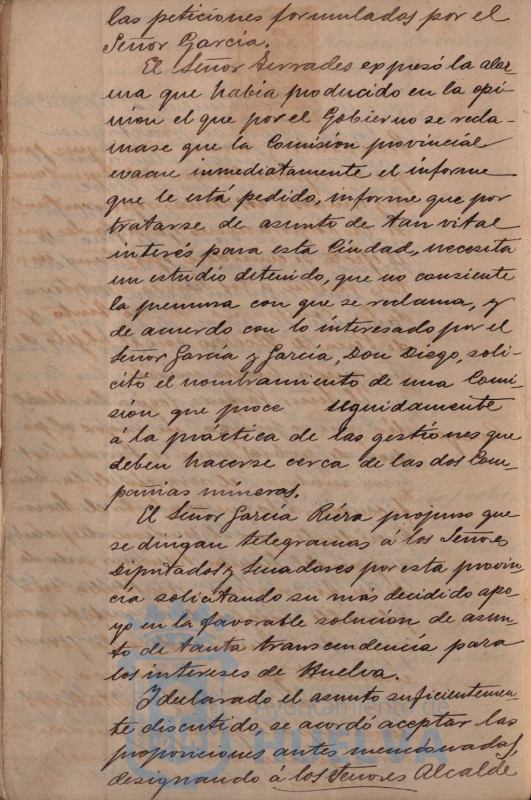 las peticiones formulados por el
Señor García.
El Señor Terrades expresó la alar-
ma que había producido en la opi-
nion el que por el Gobierno se recla-
mase que la Comisión provincial
evacue inmediatamente el informe
que le está pedido, informe que por
tratarse de asunto de tan vital
interés para esta Ciudad, necesita
un estudio detenido, que no consiente
la premura con que se reclama, y
de acuerdo con lo interesado por el
Señor García y García, Don Diego, soli-
citó el nombramiento de una Comi-
sión que proce seguidamente
á la práctica de las gestiones que
deben hacerse cerca de las dos Com-
pañias mineras.
El Señor García Riera propuso que
se dirijan telegramas á los Señores
Diputados y Senadores por esta provin-
cía solicitando su más decidido apo-
yo en la favorable solución de asun-
to de tanta transcendencia para
los intereses de Huelva.
I declarado el asunto suficientemen-
te discutido, se acordó aceptar las
proposiciones antes mencionadas,
designando á los Señores Alcalde
Ayuntamiento de
HUELVA